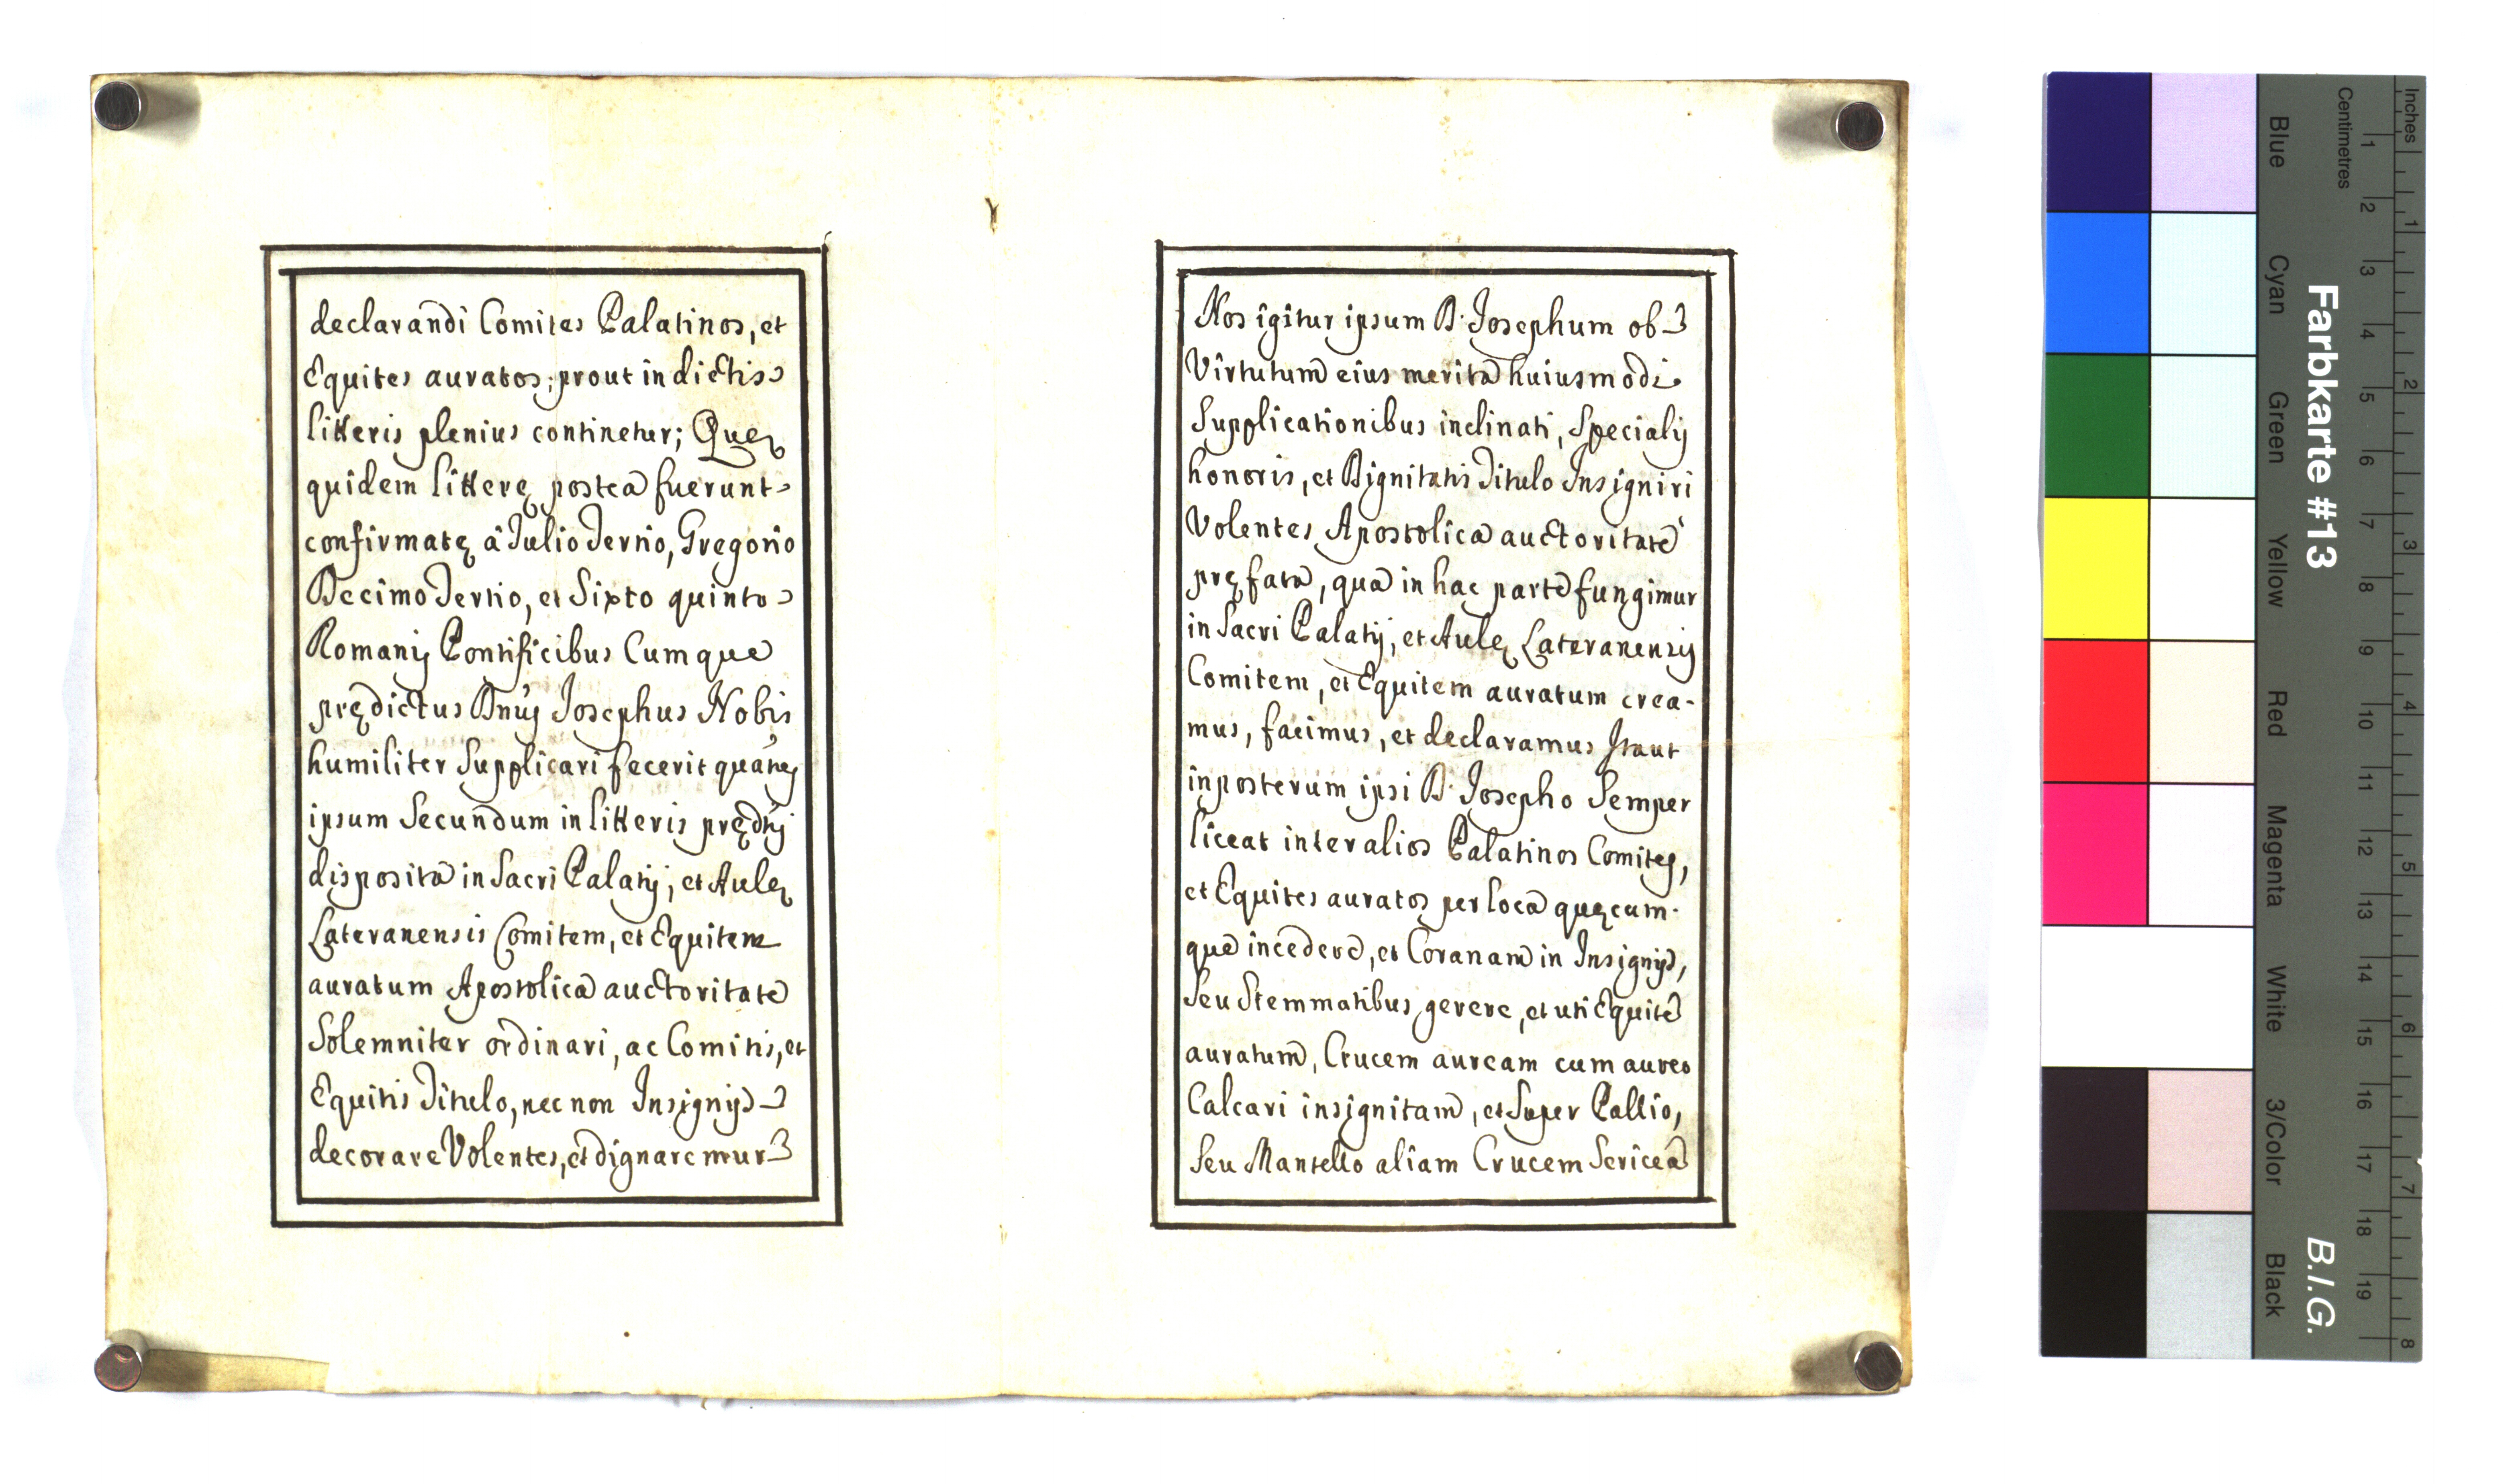 declarandi Comites Palatinos, et
Equites auratos; prout in dictis
litteris plenius continetur; Quę
quidem litterę postea fuerunt
confirmatę â Iulio Tertio, Gregorio
Decimo Tertio, et Sixto quinto
Romanis Pontificibus Cumque
prędictus Dnus Josephus Nobis
humiliter Supplicari fecerit
ipsum Secundum in litteris
disposita in Sacri Palatij, et Aulę
Lateranensis Comitem, et Equitem
auratum Apostolica auctoritate
Solemniter ordinari, ac Comitis, et
Equitis Titulo, nec non Insignijs
decorare Volentes, et dignaremur
Nos igitur ipsum D. Josephum ob
Virtutum eius merita huiusmodi
Supplicationibus inclinati, Specialis
honoris, et Dignitatis Titulo Insigniri
Volentes Apostolica auctoritate
pręfata, qua in hac parte fungimur
in Sacri Palatij, et Aulę Lateranensis
Comitem, et Equitem auratum crea-
mus, facimus, et declaramus Itaut
inposterum ipsi D. Josepho Semper
liceat inter alios Palatinos Comites,
et Equites auratos per loca quęcum-
que incedere, et Coranam in Insignijs,
Seu Stemmatibus gerere, et uti Equite
auratum, Crucem auream cum aureo
Calcari insignitam, et Super Pallio,
Seu Mantello aliam Crucem Sericea
Inches
Centimetres
1 2 3 4 5 6 7 8
1 2 3 4 5 6 7 8 9 10 11 12 13 14 15 16 17 18 19
Farbkarte #13
B.I.G.
Blue
Cyan
Green
Yellow
Red
Magenta
White
3/Color
Black